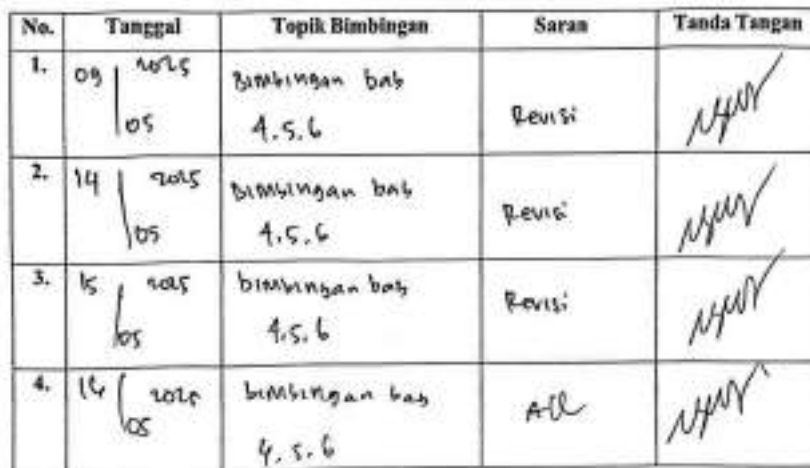 No. Tanggal Topik Bimbingan Saran Tanda Tangan
1. 09 | 2025 Bimbingan bab
05 4.5.6 Revisi
2. 14 | 2025 Bimbingan bab
05 4.5.6 Revisi
3. 15 | 2025 bimbingan bab Revisi
05 4.5.6
4. 2025 bimbingan bab
05 4.5.6